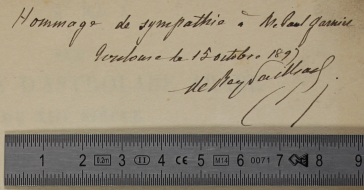 Hommage de sympathie à M. Paul Garnier
Toulouse le 15 octobre 189
de
1 2 0.2m 3 II 4 CE 5 M14 6 0071 7 8 9